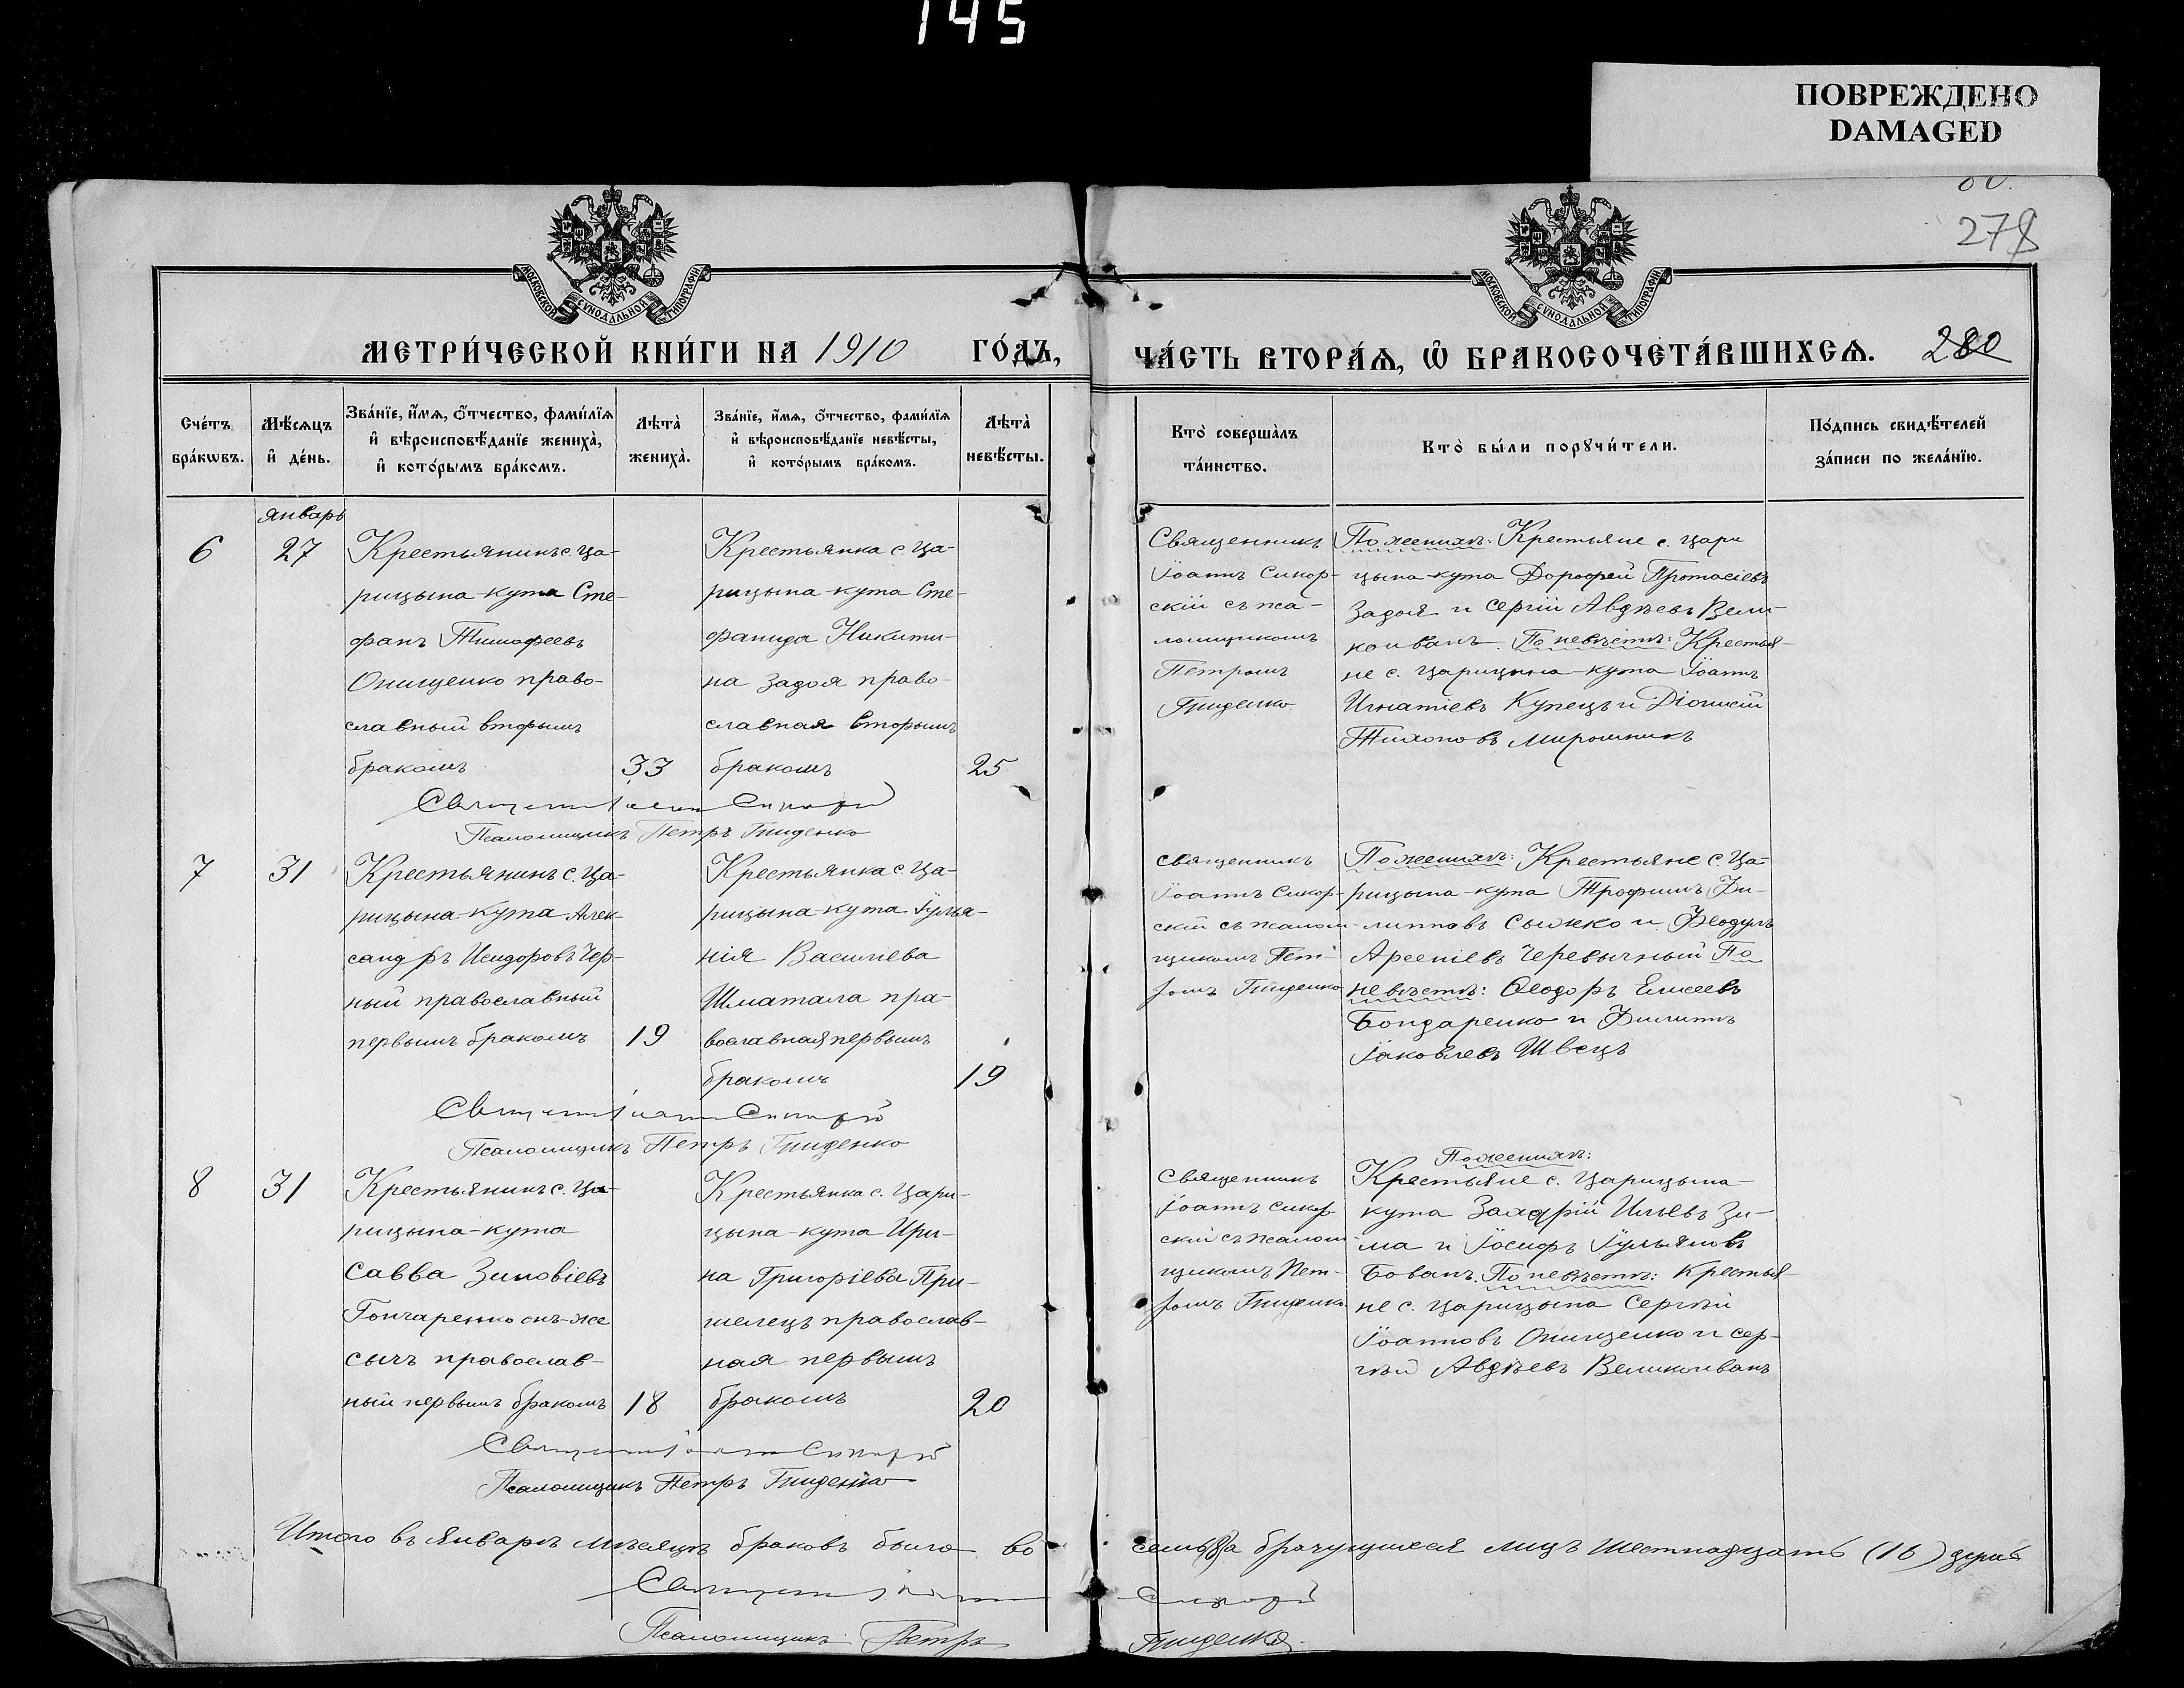 145
ПОВРЕЖДЕНО
DAMAGED
278
МОСКОВСКОЙ СѴНОДАЛЬНОЙ ТИПОГРАФІИ
МОСКОВСКОЙ СѴНОДАЛЬНОЙ ТИПОГРАФІИ
МЕТРИ́ЧЕСКОЙ КНИ́ГИ НА 1910 ГО́ДЪ,
ЧА́СТЬ ВТОРА́Ѧ, Ѿ БРАКОСОЧЕТА́ВШИХСѦ. 280
Сче́тъ бра́кѡвъ.
Мѣ́сѧцъ и҆ де́нь.
Зва́нїе, и҆́мѧ, ѻ҆́тчество, фами́лїѧ и҆ вѣроисповѣ́данїе жениха̀, и҆ кото́рымъ бра́комъ.
Лѣта̀ жениха̀.
Зва́нїе, и҆́мѧ, ѻ҆́тчество, фами́лїѧ и҆ вѣроисповѣ́данїе невѣ́сты, и҆ кото́рымъ бра́комъ.
Лѣта̀ невѣ́сты.
Кто̀ соверша̀лъ та́инство.
Кто̀ бы́ли порꙋчи́тели.
По́дпись свидѣ́телей за́писи по жела́нїю.
январь
6
27
Крестьянинъ с. Ца-
рицына-кута Сте-
фанъ Тимофеевъ
Онищенко право-
славный вторымъ
бракомъ
33
Крестьянка с. Ца-
рицына-кута Сте-
фанида Никити-
на Задоя право-
славная вторымъ
бракомъ
25
Священникъ
Іоаннъ Сикор-
скій съ пса-
ломщикомъ
Петромъ
Гниденко.
По женихѣ: Крестьяне с. Цари
цына-кута Дорофей Протасіевъ
Задоя и Сергій Авдѣевъ Вели-
коиванъ. По невѣстѣ: Крестья-
не с. Царицына-кута Іоаннъ
Игнатіевъ Купецъ и Діонисій
Тихоновъ Мирошникъ
Священникъ Іоаннъ Сикорскій
Псаломщикъ Петръ Гниденко
7
31
Крестьянинъ с. Ца-
рицына-кута Алек-
сандръ Исидоровъ Чер-
ный православный
первымъ бракомъ
19
Крестьянка с. Ца-
рицына-кута Іулiа-
нія Василіева
Шматала пра-
вославная первымъ
бракомъ
19
священникъ
Іоаннъ Сикор-
скій съ псалом-
щикомъ Пет-
ромъ Гниденко
По женихѣ: Крестьяне с. Ца-
рицына-кута Трофимъ Фи-
липповъ Сыжко и Феодулъ
Арсеніевъ Черевычный По
невѣстѣ: Ѳеодоръ Елисеевъ
Бондаренко и Филиппъ
Іаковлевъ Швецъ
Священникъ Іоаннъ Сикорскій
Псаломщикъ Петръ Гниденко
8
31
Крестьянинъ с. Ца-
рицына-кута
Савва Зиновіевъ
Гончаренко онъ-же
Сычъ православ-
ный первымъ бракомъ
18
Крестьянка с. Цари-
цына-кута Ири-
на Григоріева При-
шелецъ православ-
ная первымъ
бракомъ
20
Священникъ
Іоаннъ Сикор-
скій съ псалом-
щикомъ Пет-
ромъ Гниденко
По женихѣ:
Крестьяне с. Царицына-
кута Захарій Ильевъ Зи-
ма и Іосифъ Іульяновъ
Бованъ. По невѣстѣ: Крестья-
не с. Царицына Сергѣй
Іоанновъ Онищенко и Сер-
гѣй Авдѣевъ Великоиванъ
Священникъ Іоаннъ Сикорскій
Псаломщикъ Петръ Гниденко
Итого въ январѣ мѣсяцѣ браковъ было восемь (8) а брачущихся лицъ шестнадцать (16) душъ
Священникъ Іоаннъ Сикорскій
Псаломщикъ Петръ Гниденко